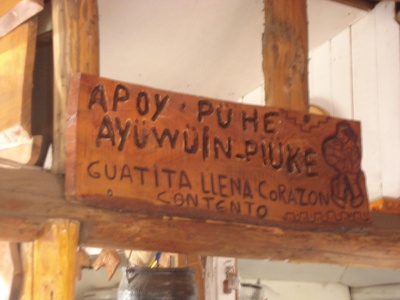 APOY · PÜHE
AYÜWÜIN-PIUKE
GUATITA LLENA CORAZON
CONTENTO